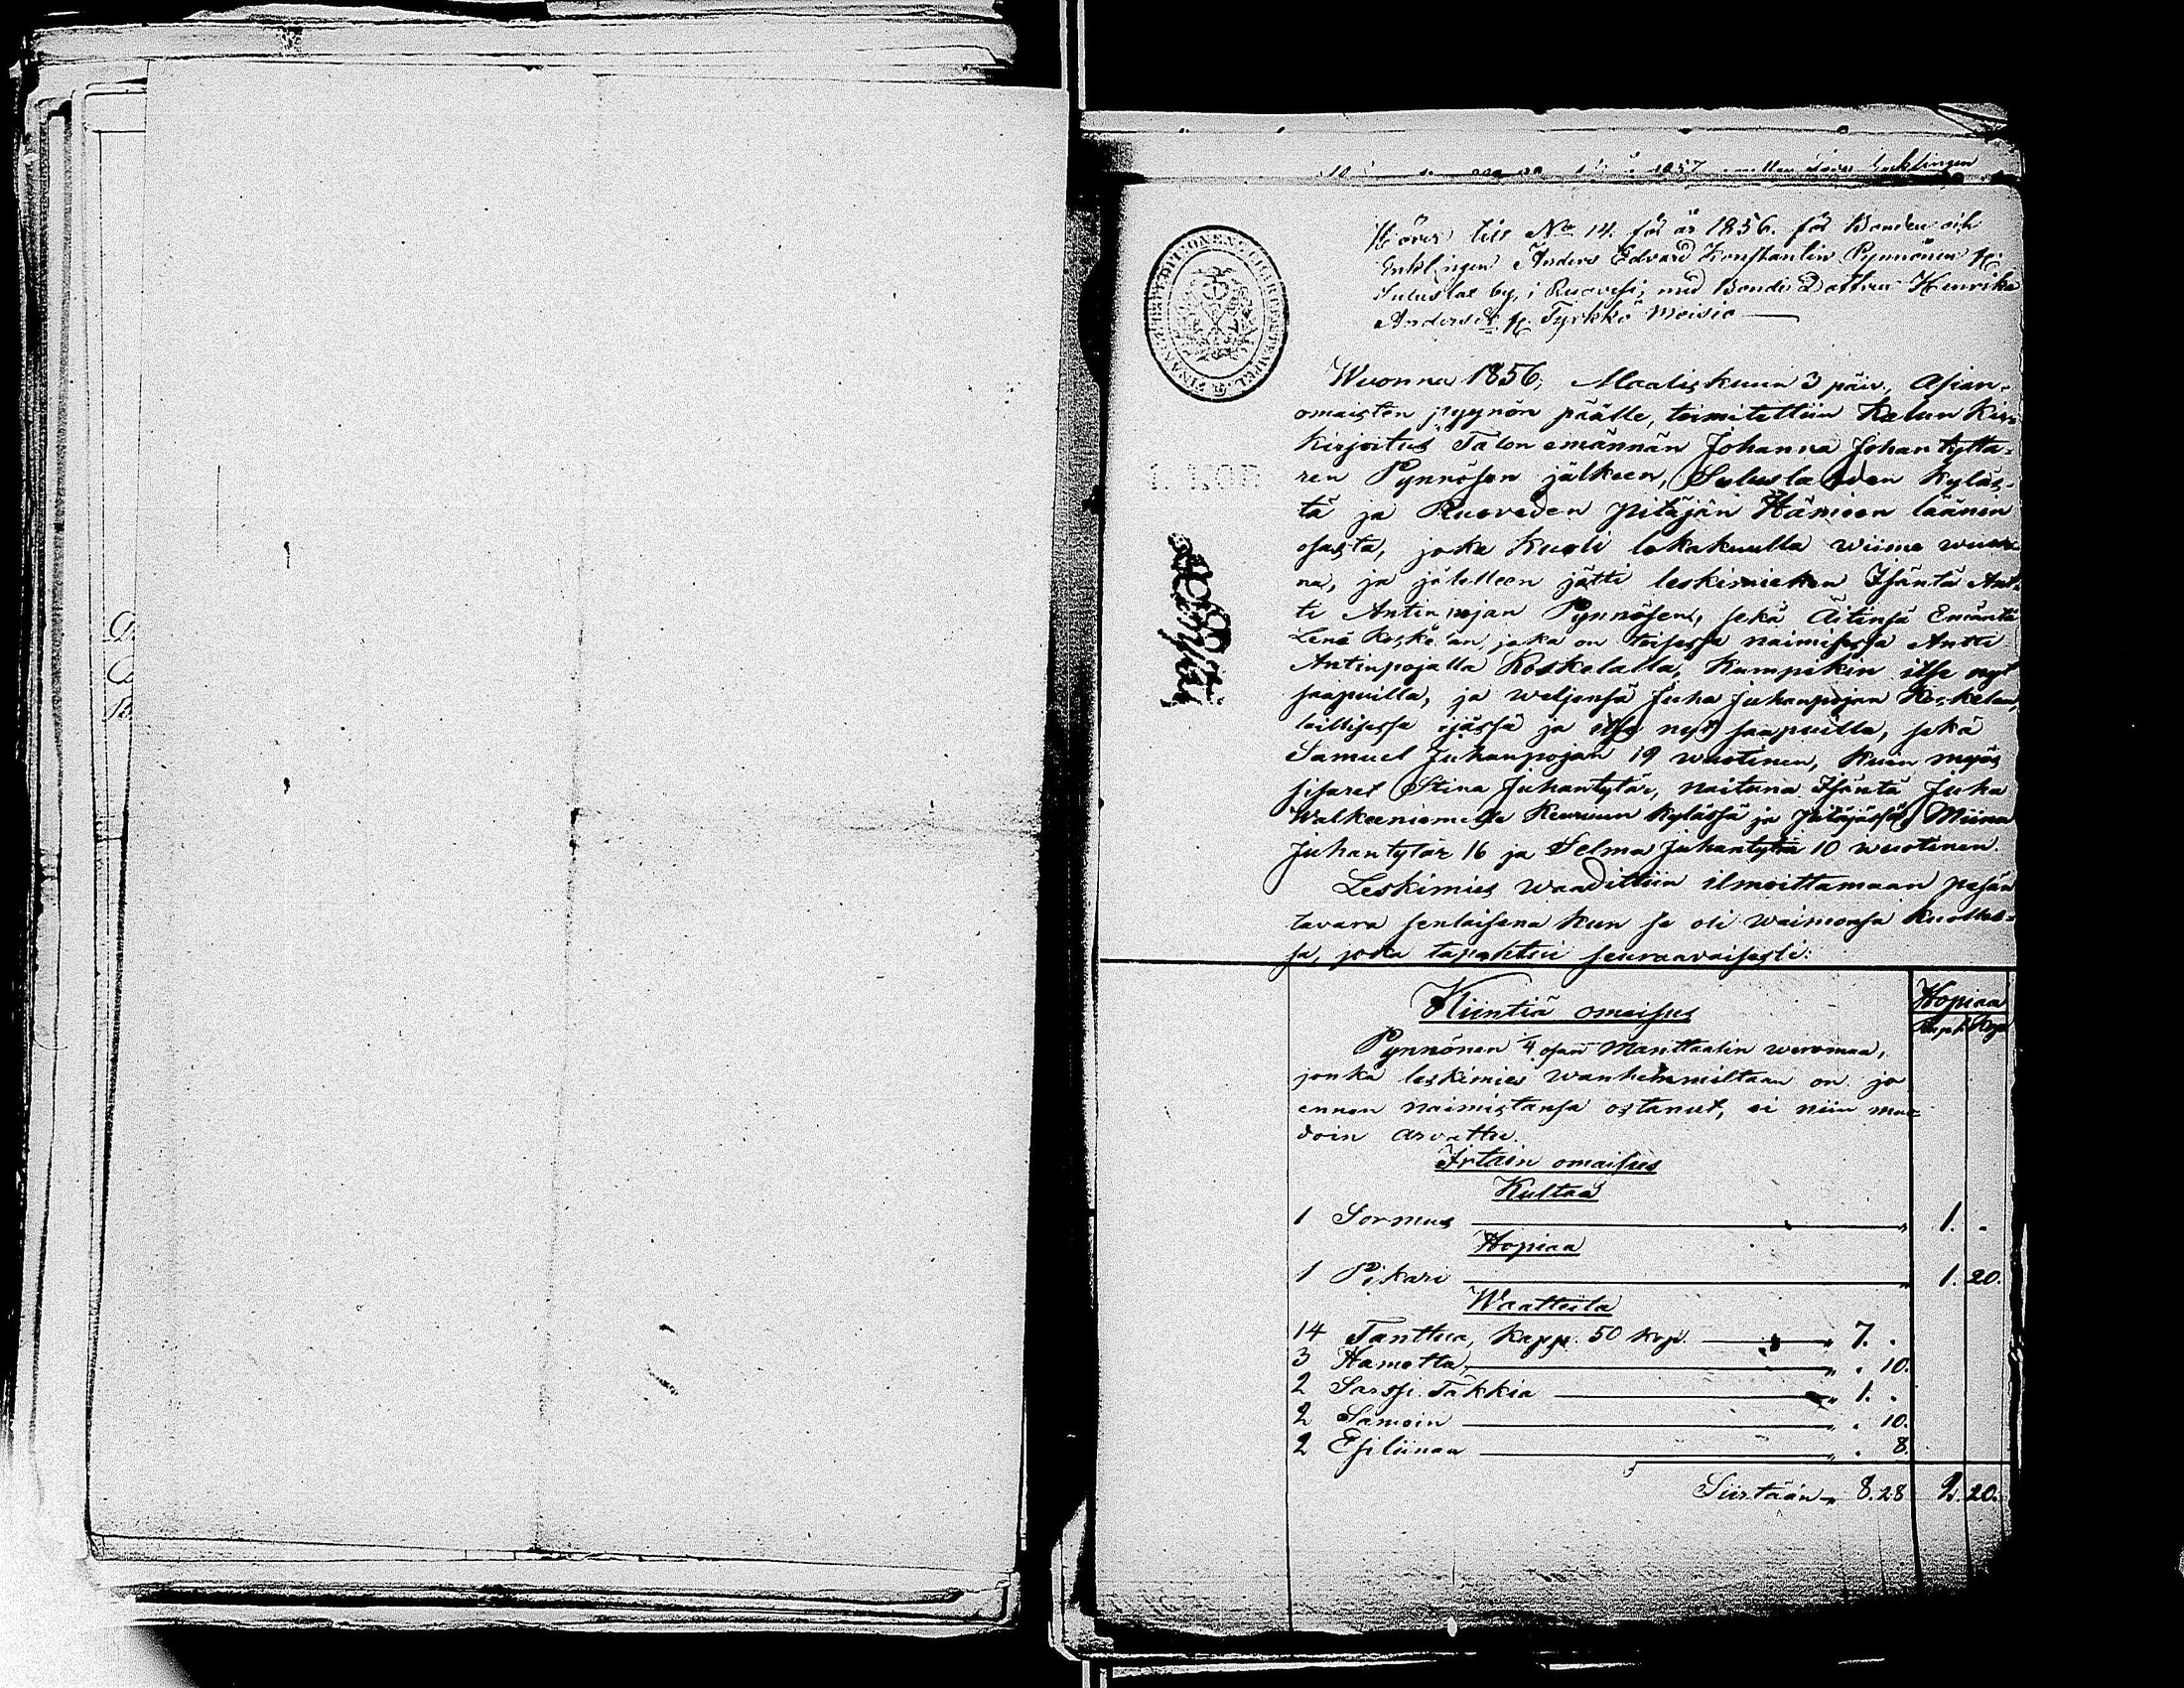 Hörer till No 14. för år 1856. för Bonden och
Enklingen Anders Edvard Konstantin Pynnönen
by, i Ruovesi, med Bonde Dottren Henrika
Andersdr Tyrkkö Moisio
Wuonna 1856, Maaliskuun 3 päiv., Asian-
omaisten pyynön päälle, toimitettiin Kalun Kir-
kirjoitus Talon emännän Johanna Johantyttä-
ren Pynnösen jälkeen, kyläs-
tä ja Ruoveden pitäjän Hämeen läänin
osasta, joka kuoli lokakuulla wiime wuon-
na, ja jälelleen jätti leskimiehen Isäntä Ant-
ti Antinpojan Pynnösen, sekä Äitinsä Emäntä
Lena Koskelan, joka on toisessa naimisessa Antti
Antinpojalla Koskelalla, Kumpikin itse nyt
saapuilla, ja weljensä Juha Juhanpojan Koskelan,
laillisessa ijässä ja itse nyt saapuilla, sekä
Samuel Juhanpojan 19 wuotinen, kuin myös
sisaret Stina Juhantytär, naituna Isäntä Juha
Walkeeniemelle Keuruun kylässä ja pitäjässä, Miina
Juhantytär 16 ja Selma Juhantytär 10 wuotinen.
Leskimies waadittiin ilmoittamaan pesän
tavara senlaisena kun se oli waimonsa kuolles-
sa, joka tapahtui seuraavaisesti:
Kiintiä omaisus
Hopiaa
Rupl. Kop
Pynnönen 1/4 osan Manttaalin weromaa,
jonka leskimies wanhemmiltaan on jo
ennen naimistansa ostanut, ei niin muo-
doin arvattu.
Irtain omaisus
Kultaa
1 Sormus " 1. "
Hopiaa
1 Pikari " 1. 20.
Waatteita
14 Tanttua, kapp. 50 kop. " 7. "
3 Hametta " " 10.
2 Sarssi Täkkiä " 1. "
2 Samoin " " 10.
2 Esiliinaa " " 8.
Siirtään " 8.28 2. 20.